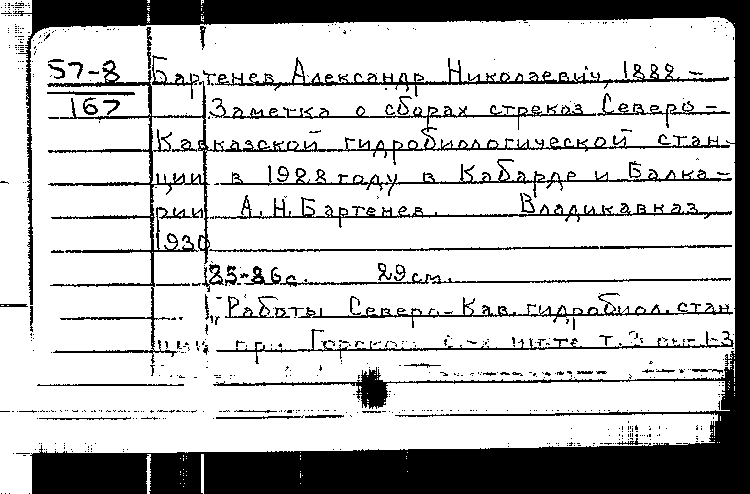 57-8 Бартенев, Александр Николаевич, 1882 –
167 Заметка о сборах стрекоз Северо-
Кавказской гидробиологической стан-
ции в 1928 году в Кабарде и Балка-
рии А.Н.Бартенев. Владикавказ,
1930
85-86с. 29см.
„Работы Северо-Кав. гидробиол. стан
ции при Горском с.-х. ин-те т.3 вып 1-3